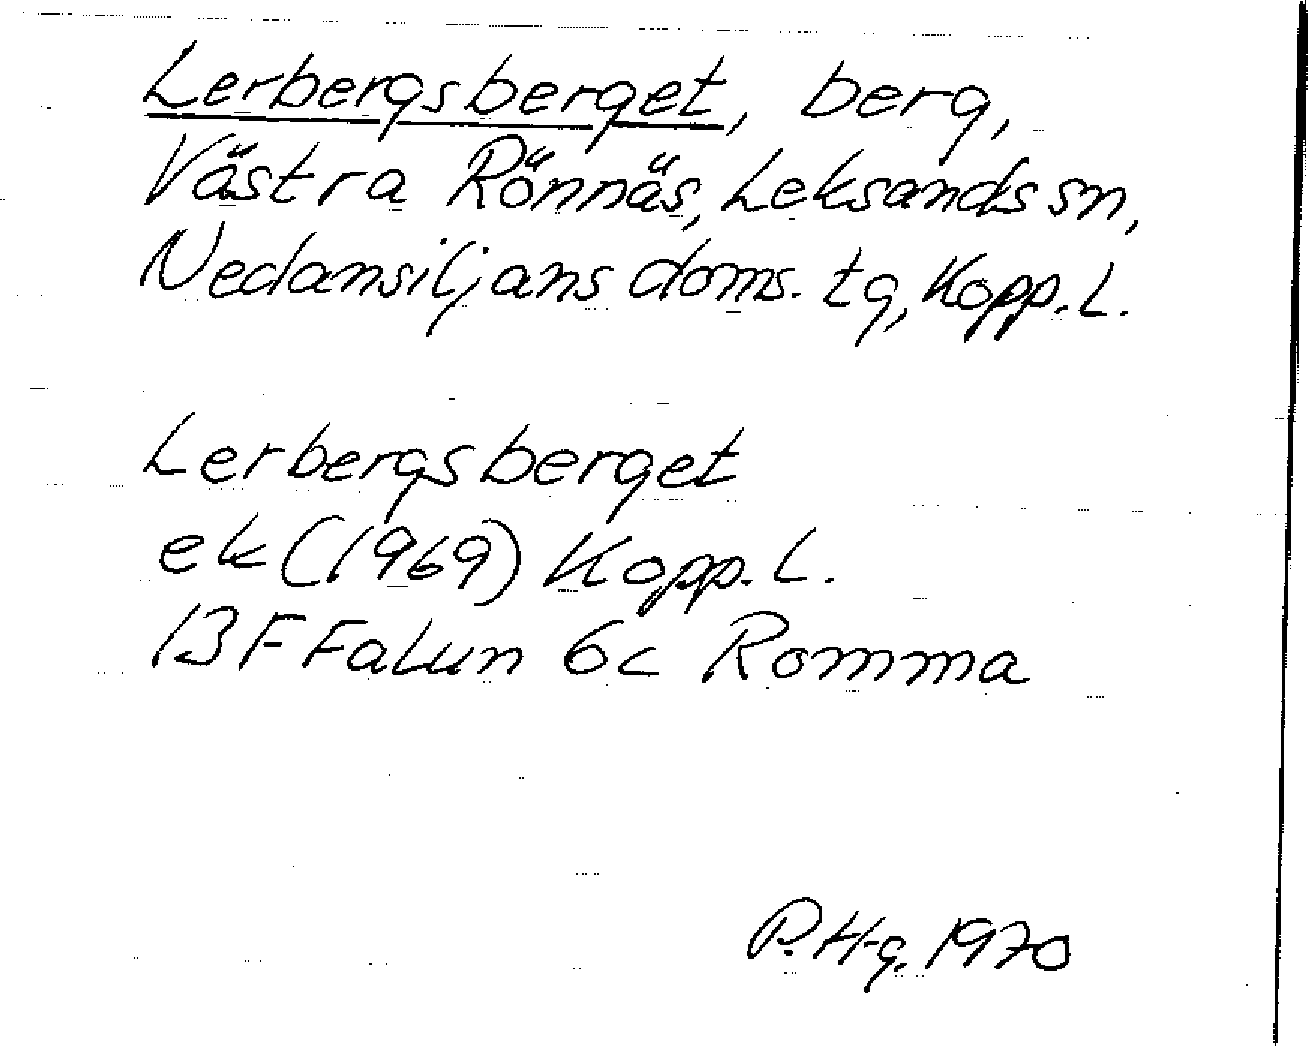 Lerbergsberget, berg,
Västra Rönnäs, Leksands sn,
Nedansiljans doms. tg, Kopp. L.
Lerbergsberget
ek (1969) Kopp. L.
13 F Falun 6c Romma
P. Hg. 1970